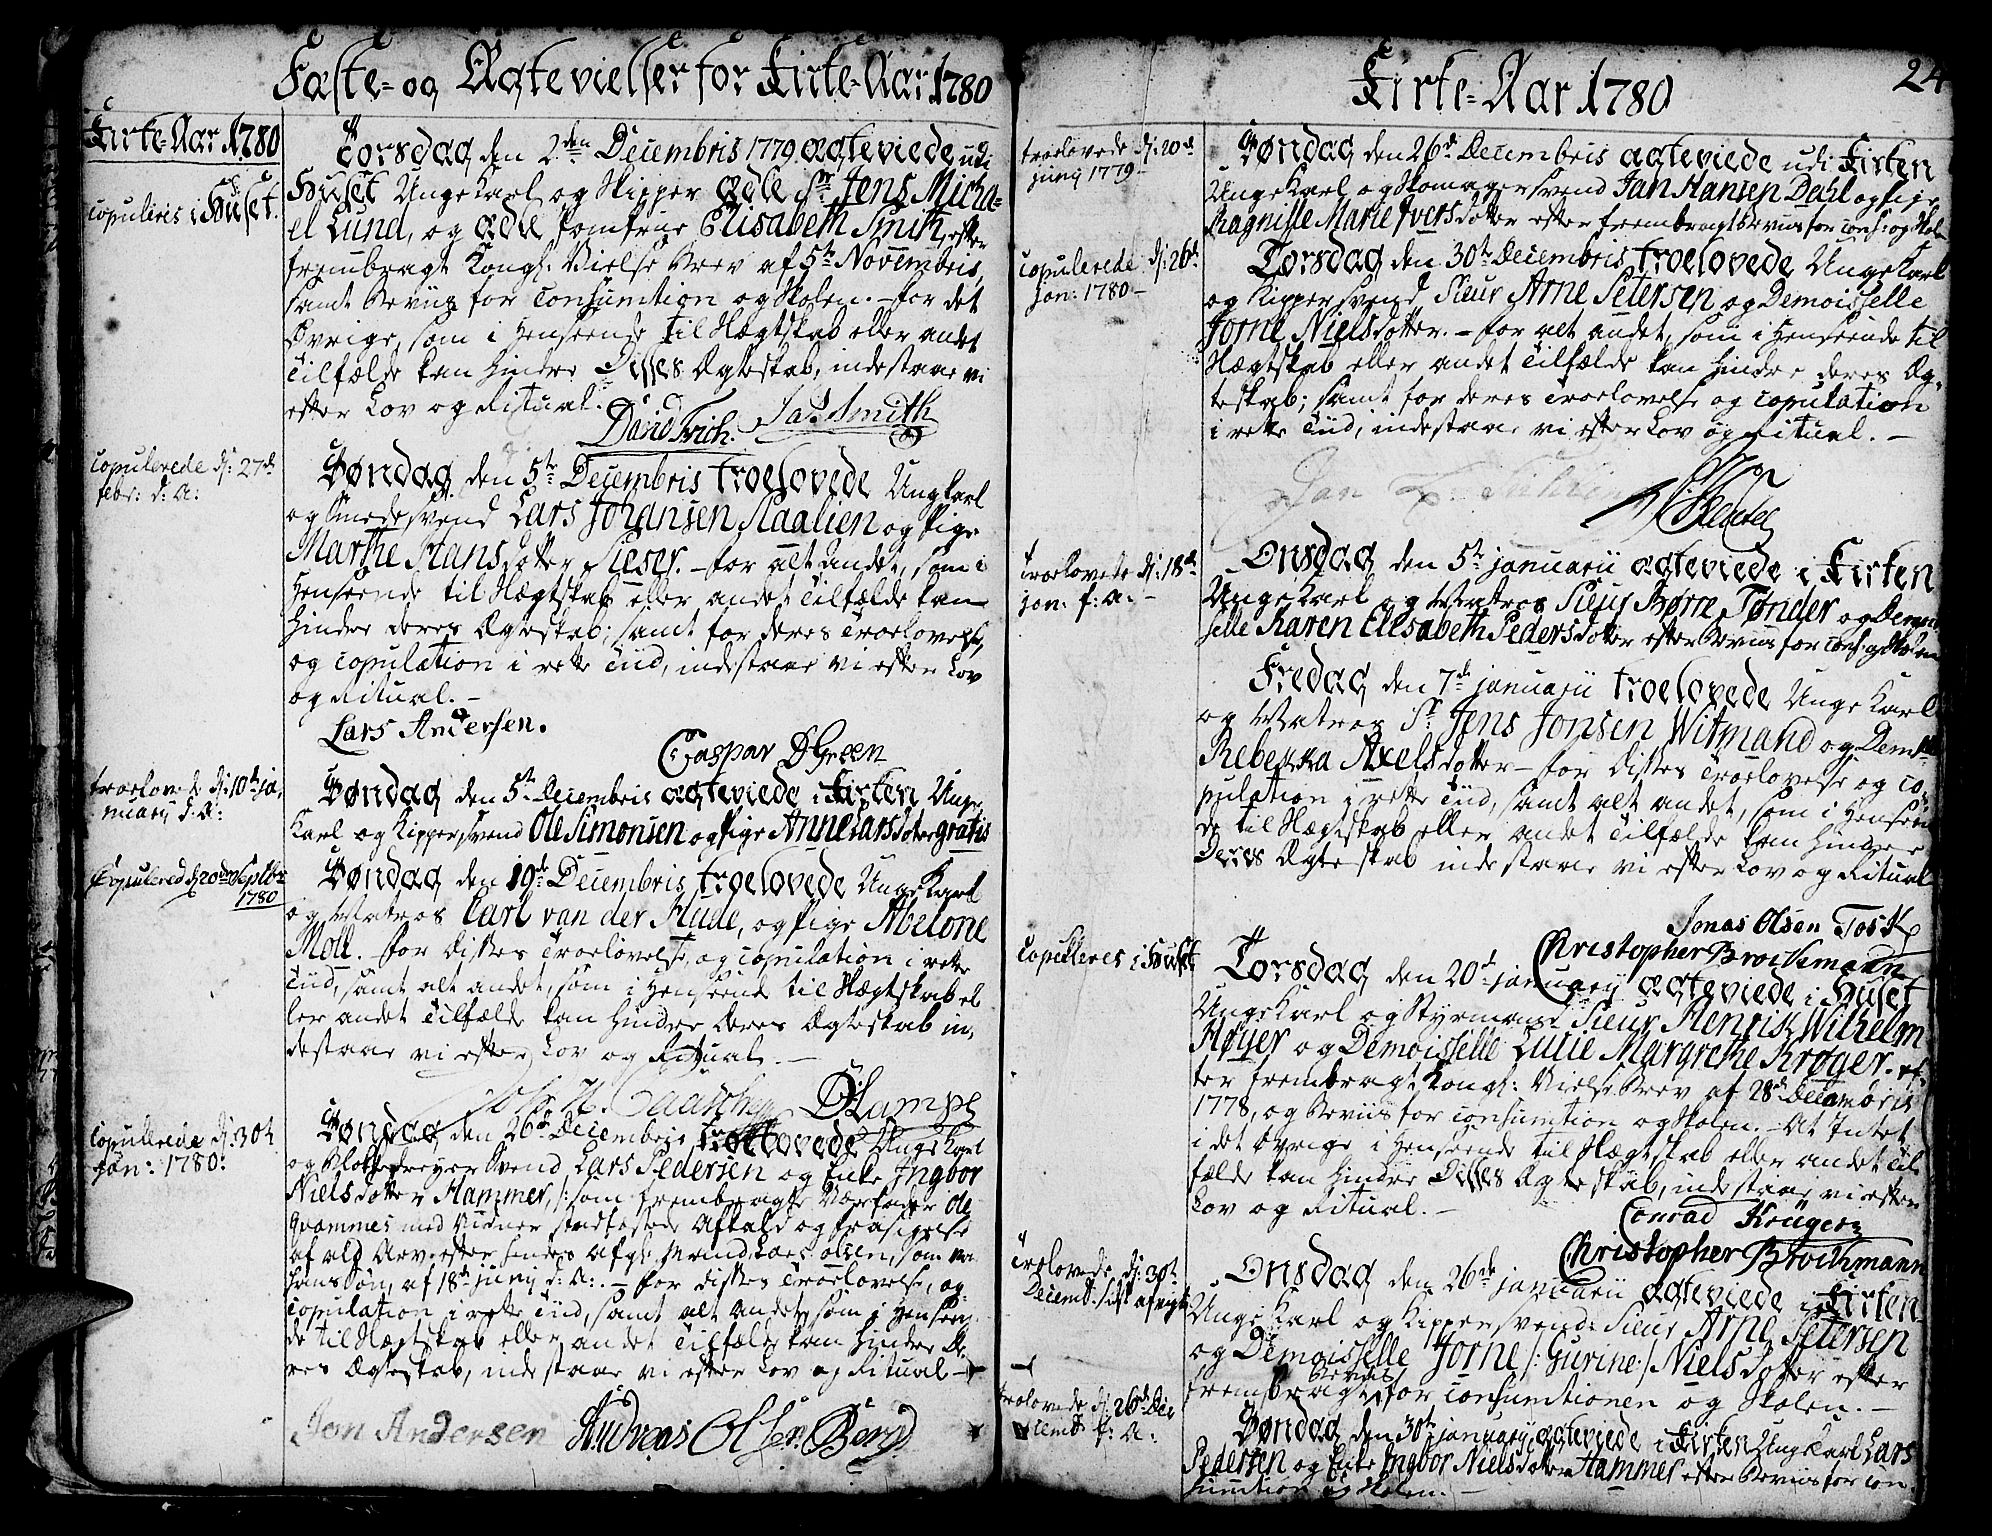 Fæste- og Ægtevielser for Kirke-Aar 1780
Kirke-Aar 1780
Torsdag den 2den Decembris 1779 ægteviede udi
copuleris i Huset.
Huset Ungekarl og Skipper ædle Sr Jens Micha-
el Lund, og ædle Jomfrue Elisabeth Smith, efter
frembragt Kongl: Vielse Brev af 5te Novembris,
samt Beviis for Consumtion og Skolen. - for det
Øvrige, som i Henseende til Slægtskab eller andet
Tilfælde kan hindre Disses Ægteskab, indestaae vi
efter Lov og Ritual.
David Frich. Ja: Smith
copulerede d: 27de
febr: d: A:
Søndag den 5te Decembris troelovede Ungkarl
og Smedesvend Lars Johansen Slaalien og Pige
Marthe Hansdotter Sieser. - for alt andet, som i
Henseende til Slægtskab eller andet Tilfælde kan
hindre deres Ægteskab; samt for deres Troelovelse,
og copulation i rette Tiid, indestaae vi efter Lov
og Ritual. -
Lars Andersen.
Caspar D Green
troelovede d: 10de ja,
nuarij d: A:
Søndag den 5te Decembris ægteviede i Kirken Unge
Karl og Kippersvend Ole Simonsen og Pige Anne Larsdotter gratis
Copulered d 20de Septbr
1780
Søndag den 19de Decembris troelovede Ungekarl
og Matros Carl van der Hude, og Pige Abelone
Moll. - for Disses Troelovelse, og copulation i rette
Tiid, samt alt andet, som i Henseende til Slægtskab el
ler andet Tilfælde kan hindre Deres Ægteskab in,
destaae vi efter Lov og Ritual. -
D Lampe
copulerede d: 30te
Jan: 1780:
Søndag den 26de Decembris troelovede Ungekarl
og Blokkedreyer Svend Lars Pedersen og Enke Ingbor
Nielsdotter Hammer, /: som frembragte Værfader Ole
Qvammes med Vidner stadfæstede Afkald og frasigelse
af ald Arv efter hendes afg: Mand Lars Olsen, som var
hans Søn, af 18de Junij d: A:. - for Disses Troelovelse, og
copulation i rette Tiid, samt alt andet, som i Henseen,
de til Slægtskab eller andet Tilfælde kan hindre De,
res Ægteskab, indestaae vi efter Lov og Ritual -
Jon Andersen Andreas Olsen Berg
Kirke-Aar 1780
24
troelovede d: 20de
Junij 1779 -
Søndag den 26de Decembris ægteviede udi Kirken
Ungekarl og Skomagersvend Jan Hansen Dahl og Pige
Ragnille Marie Iversdotter efter frembragt Beviis for Cons: og Skole
copulerede d: 26de
Jan: 1780 -
Torsdag den 30te Decembris troelovede Ungekarl
og Kippersvend Sieur Arne Petersen og Demoisselle
Jorne Nielsdotter. - for alt andet, som i Henseende til
Slægtskab eller andet Tilfælde kan hindre deres Æg-
teskab; samt for deres Troelovelse og copulation
i rette Tiid, indestaae vi efter Lov og Ritual. -
troelovede d: 18de
Jan: f: A: -
Onsdag den 5te Januarii ægteviede i Kirken
Ungekarl og Matros Sieur Børre Tønder og Demoi
selle Karen Elisabeth Pedersdotter efter Beviis for Cons: og Skolen
Fredag den 7de Januarii troelovede Unge Karl
og Matros Sr Jens Jonsen Witmand og Demslle
Rebekka Axelsdotter - for Disses Troelovelse og co-
pulation i rette Tiid, samt alt andet, som i Henseen
de til Slægtskab eller andet Tilfælde kan hindre
Deres Ægteskab indestaae vi efter Lov og Ritual
Jonas Olsen Tosk
Christopher Brockmann
copuleres i Huset
Torsdag den 20de January ægteviede i Huset
Ungekarl og Styrmand Sieur Henrik Wilhelm
Høyer og Demoisselle Lucie Margrethe Krøger. ef-
ter frembragt Kongl: Vielse Brev af 28de Decembris
1778, og Beviis for Consumtion og Skolen. - At Intet
i det Øvrige i Henseende til Slægtskab eller andet Til
fælde kan hindre Disses Ægteskab, indestaae vi efter
Lov og Ritual. -
Conrad Krüger
Christopher Brockmann
Troelovede d: 30te
Decemb: sidst afvigte
Onsdag den 26de Januarii ægteviede i Kirken
Unge Karl og Kippersvend: Sieur Arne Petersen
og Demoisselle Jorne /: Gurine :/ Nielsdotter efter
Beviis
frembragt for Consumtionen og Skolen. -
trolovede d: 26de Dec
cemb: f: A:
Søndag den 30te January ægteviede i Kirken Ungekarl Lars
Pedersen og Enke Ingbor Nielsdotter Hammer efter Beviis for Con
sumtion og Skolen. -